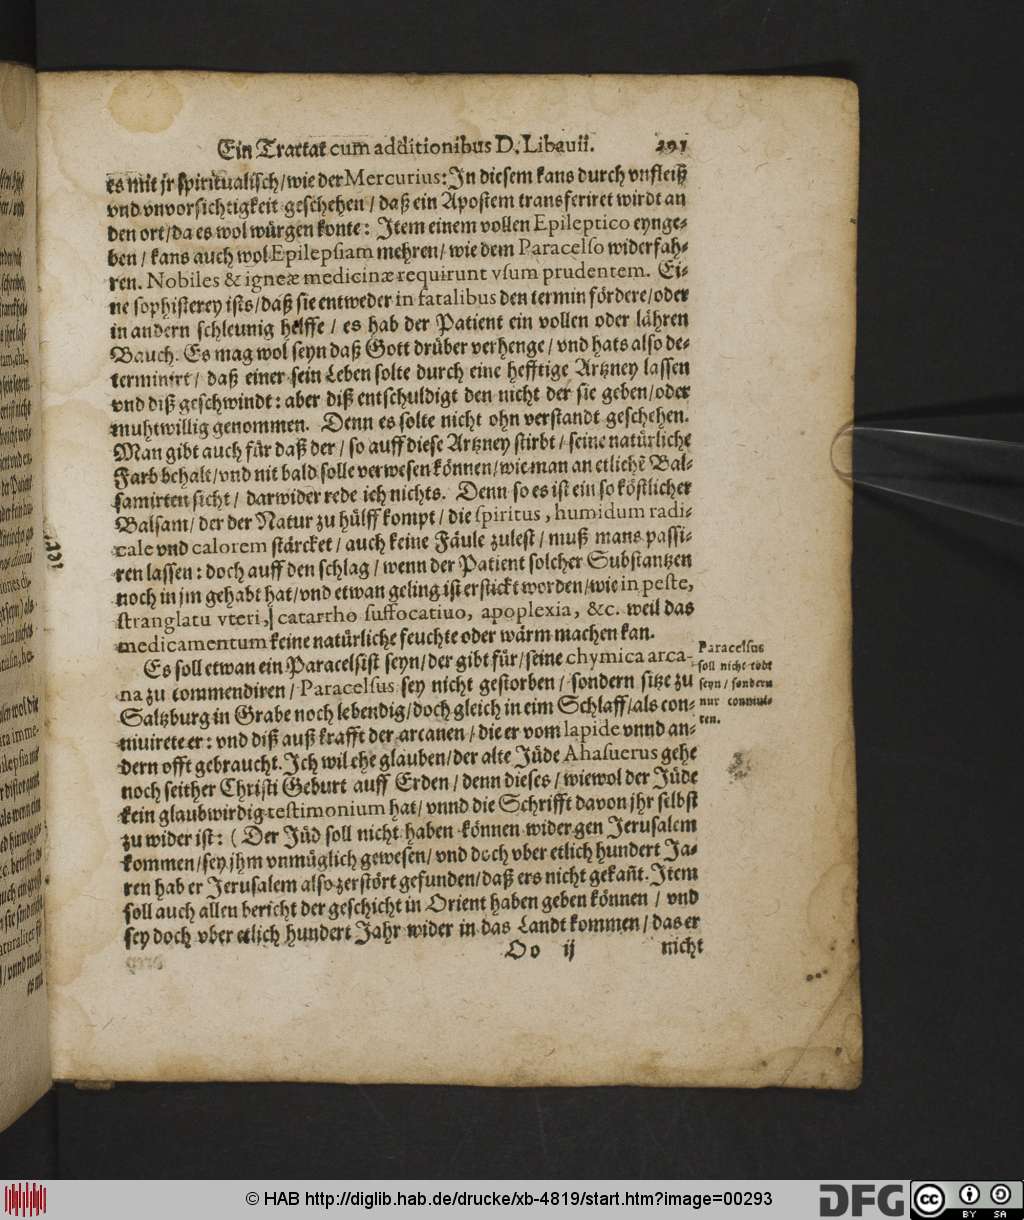 Ein Tractat cum additionibus D. Libavii. 291
es mit jr spiritualisch/wie der Mercurius: In diesem kans durch vnfleiß
vnd vnvorsichtigkeit geschehen / daß ein Apostem transferiret wirdt an
den ort/da es wol würgen konte: Item einem vollen Epileptico eynge-
ben / kans auch wol Epilepsiam mehren/ wie dem Paracelso widerfah-
ren. Nobiles & igneæ medicinæ requirunt vsum prudentem. Ei-
ne sophisterey ists/daß sie entweder in fatalibus den termin fördere/oder
in andern schleunig helffe / es hab der Patient ein vollen oder lähren
Bauch. Es mag wol seyn daß Gott drüber verhenge / vnd hats also de-
terminirt / daß einer sein Leben solte durch eine hefftige Artzney lassen
vnd diß geschwindt: aber diß entschuldigt den nicht der sie geben/oder
muhtwillig genommen. Denn es solte nicht ohn verstandt geschehen.
Man gibt auch für daß der / so auff diese Artzney stirbt / seine natürliche
Farb behalt/vnd nit bald solle verwesen können/wie man an etlichē Bal-
samirten sicht / darwider rede ich nichts. Denn so es ist ein so köstlicher
Balsam/ der der Natur zu hülff kompt / die spiritus, humidum radi-
cale vnd calorem stärcket / auch keine Fäule zulest / muß mans passi-
ren lassen: doch auff den schlag / wenn der Patient solcher Substantzen
noch in jm gehabt hat/vnd etwan geling ist erstickt worden/wie in peste,
stranglatu vteri, catarrho suffocatiuo, apoplexia, &c. weil das
medicamentum keine natürliche feuchte oder wärm machen kan.
Es soll etwan ein Paracelsist seyn/der gibt für/seine chymica arca-
na zu commendiren / Paracelsus sey nicht gestorben / sondern sitze zu
Saltzburg in Grabe noch lebendig/doch gleich in eim Schlaff/als con-
niuirete er: vnd diß auß krafft der arcanen / die er vom lapide vnnd an-
dern offt gebraucht. Ich wil ehe glauben/der alte Jüde Ahasuerus gehe
noch seither Christi Geburt auff Erden / denn dieses / wiewol der Jüde
kein glaubwirdig testimonium hat/ vnnd die Schrifft davon jhr selbst
zu wider ist: ( Der Jüd soll nicht haben können wider gen Jerusalem
kommen/sey jhm vnmüglich gewesen/ vnd doch vber etlich hundert Ja-
ren hab er Jerusalem also zerstört gefunden/daß ers nicht gekañt. Item
soll auch allen bericht der geschicht in Orient haben geben können / vnd
sey doch vber etlich hundert Jahr wider in das Landt kommen / das er
Oo ij nicht
Paracelsus
soll nicht todt
seyn / sondern
nur conniui-
ren.
© HAB http://diglib.hab.de/drucke/xb-4819/start.htm?image=00293
DFG
cc BY SA